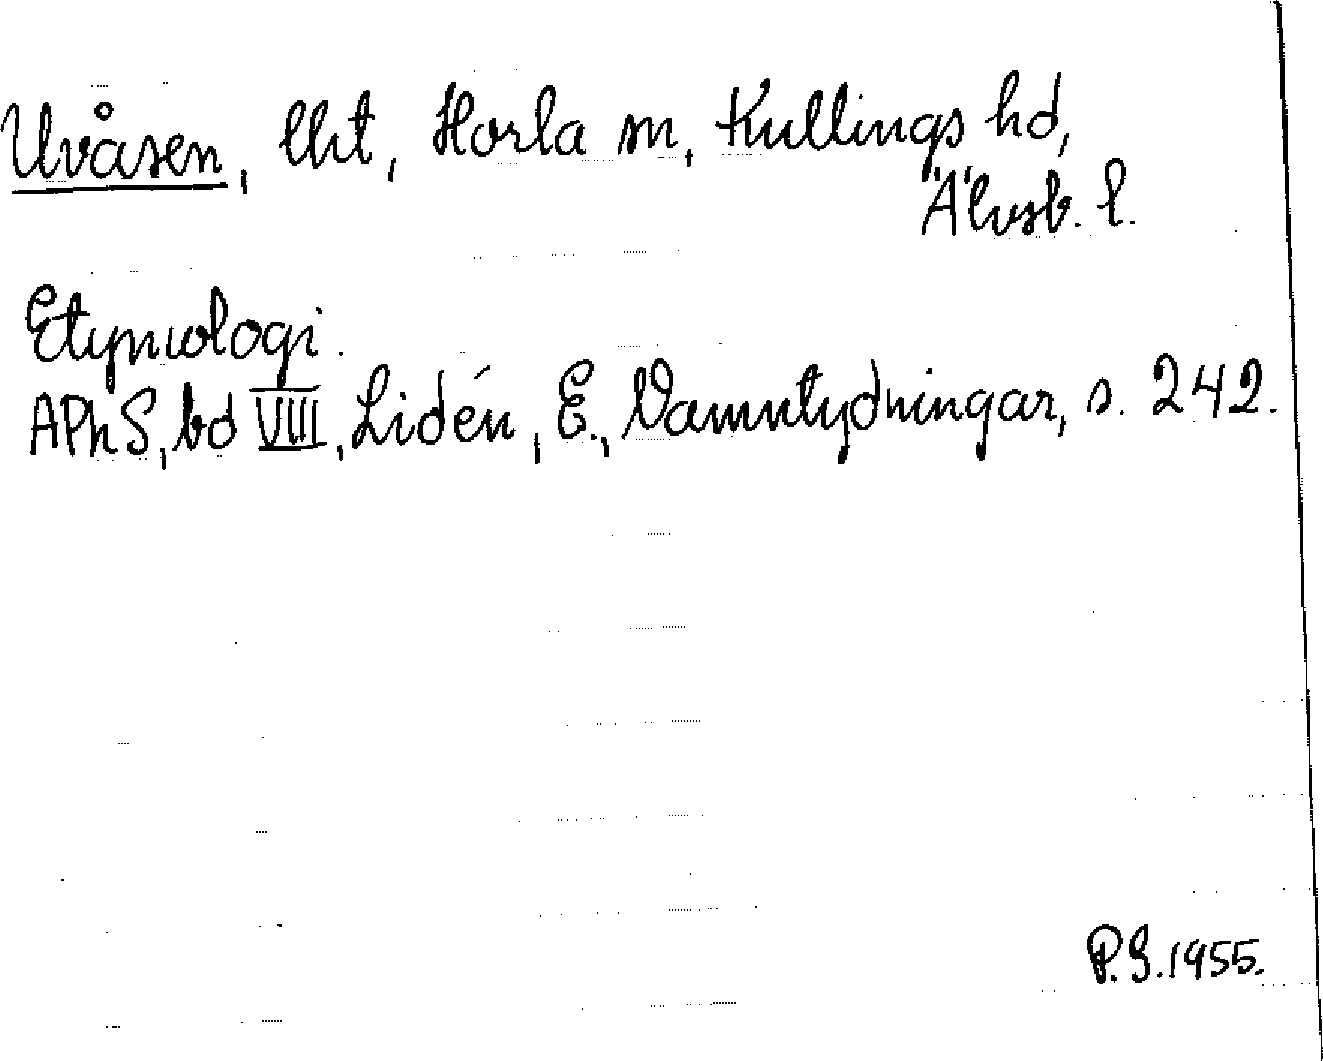 Uvåsen, lht, Horla sn, Kullings hd,
Älvsb. l.
Etymologi.
APhS, bd VIII, Lidén, E., Namntydningar, s. 242.
P.G.1955.